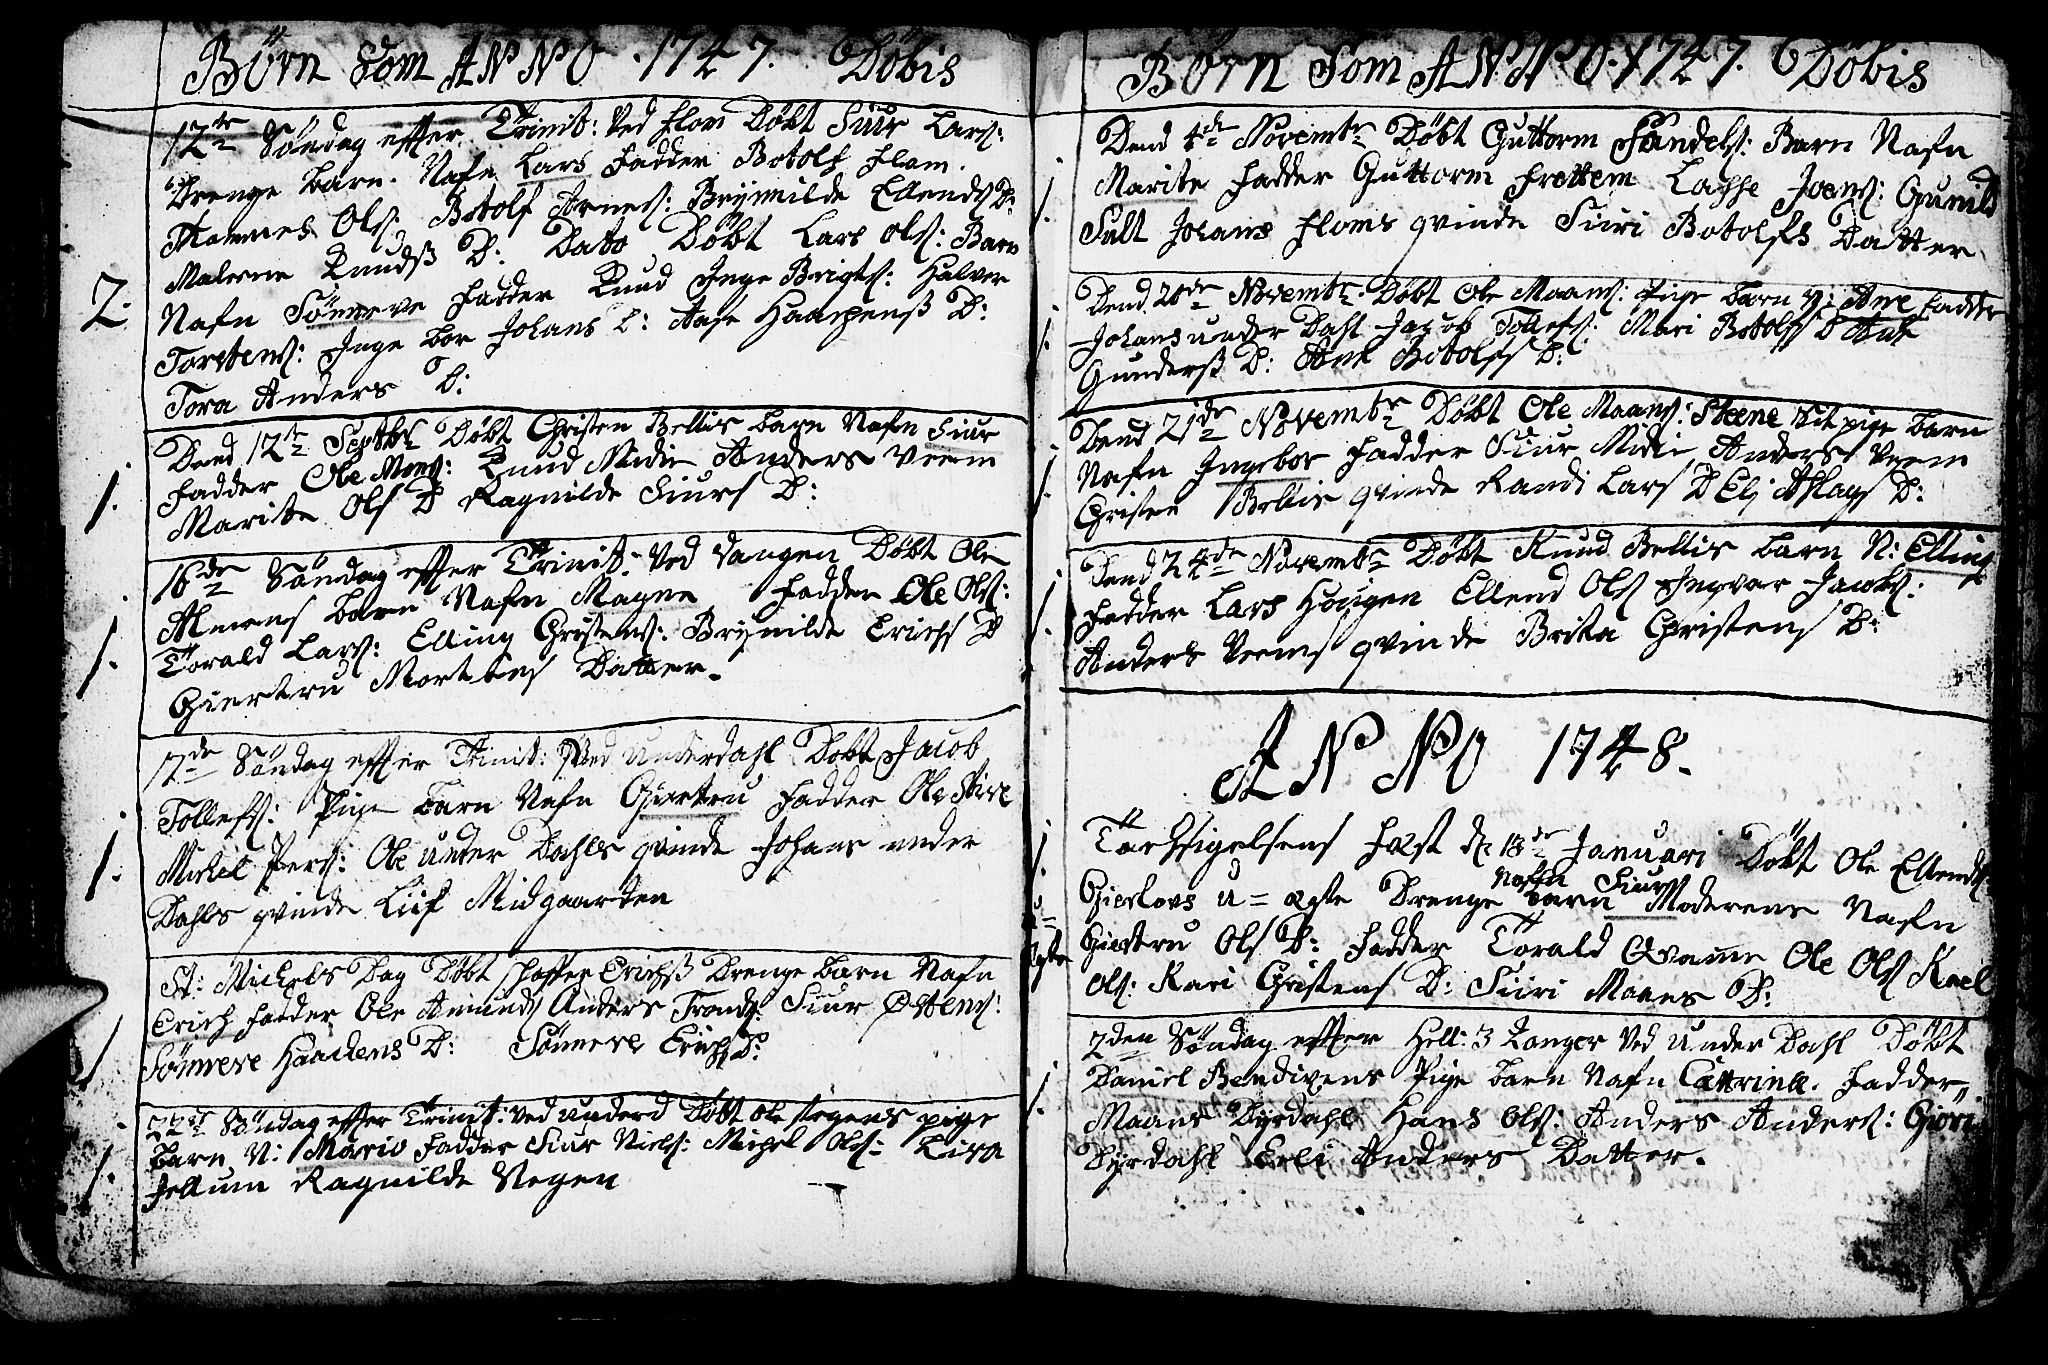 Börn Som ANNO. 1747. Döbis
12te Söndag effter Trinit: Ved Flom Döbt Siur Lars:
Drenge barn. Nafn Lars Fadder Botolf Flam.
Hannes Ols: Botolf Arnes: Brynnilde Ellends D:
Malene Knudsß D: Dato Döbt Lars Ols: Barn
2. Nafn Sönneve Fadder Knud Inge Brigts: Halvor
Torstens: Inge bor Johans D: Aase Haachensß D:
Tora Anders D:
Dend 12te Septbr Döbt Christen Bellis barn Nafn Siur
1. Fadder Ole Mons: Knud Midie Anders Veem
Marite Ols D Ragnilde Siurs D:
16de Söndag effter Trinit: Ved Vangen Döbt Ole
Almens barn Nafn Magne Fadder Ole Ols:
1. Torald Lars: Elling Christens: Brynilde Erichs D
Giertru Mortens Datter.
17de Söndag effter Trinit: Ved Underdahl Döbt Jacob
Tollefs: Pige barn Nafn Giertru Fadder Ole Stive
1. Michel Pers: Ole Under Dahls qvinde Johans under
Dahls qvinde Liif Midgaarden
St: Michels Dag Döbt Erichsß Drenge barn Nafn
1 Erich Fadder Ole Amunds Anders Tronds: Siur Östens:
Sönneve Haachens D: Sönneve Erichs D:
22de Söndag effter Trinit: Ved underd Döbt Ole Stegens pige
1. barn N: Mario Fadder Siur Niels: Michel Ols:
Fellum Ragnilde Stegen
Börn Som ANNO. 1747. Döbis
Dend 4de Novembr Döbt Guttorm Barn Nafn
1. Marite Fadder Guttorm Frettem Lasse Joens: Gunild
Sult Johans Floms qvinde Siiri Botolfs Datter
Dend 20de Novembr. Döbt Ole Maans: Pige barn N: Ane Fadder
1. Johans under Dahl Jacob Tollefs: Mari Botolfs D Ane
Gundersß D: Ane Botolfs D:
Dend 21de Novembr Döbt Ole Maans: Steene pige barn
1. Nafn Ingebor Fadder Siur Midie Anders Veem
Christen Bellis qvinde Randi Lars D Eli Aslags D:
Dend 24de Novembr Döbt Knud Bellis barn N: Elling
1. Fadder Lars Hougen Ellend Ols Ingvar Jacobs:
Anders Veems qvinde Brita Christens D:
ANNO 1748.
1. Tachsigelsens Fæst d: 18de Januari Döbt Ole Ellends:
Nafn Siur
u= ægte Gierlovs u= ægte Drenge barn Moderens Nafn
Giertru Ols D: Fadder Torald Qvame Ole Ols Kael
Ols: Kari Christens D: Siiri Maans D:
2den Söndag effter Hell: 3 Konger Ved Under Dahl Döbt
1. Daniel Bendixens Pige barn Nafn Cattrina. Fadder
Maans Dyrdahl Hans Ols: Anders Anders: Giöri
Dyrdahl Erli Anders Datter.